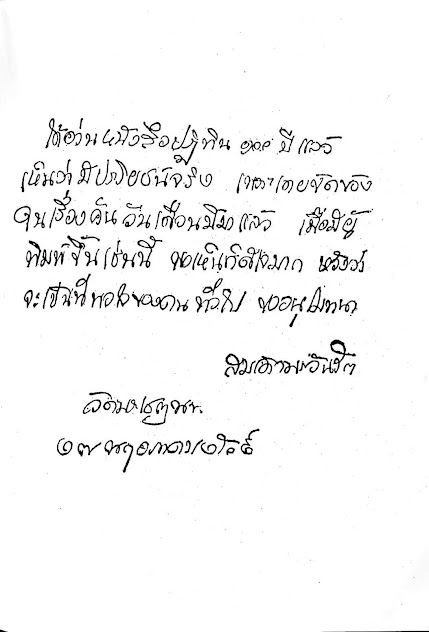 ได้อ่านหนังสือปฏิทิน ๑๐๐ ปี แล้ว
เห็นว่ามีประโยชน์จริง เพราะเคยขัดข้อง
ค้นเรื่องคืนวันเดือนปีมาแล้ว เมื่อมีผู้
พิมพ์ขึ้นเช่นนี้ ขอเห็นก็ดีใจมาก หวังว่า
จะเป็นที่พอใจของคนทั่วไป ขออนุโมทนา
สมเด็จพระวันรัต
วัด
๑๗ พฤษภาคม